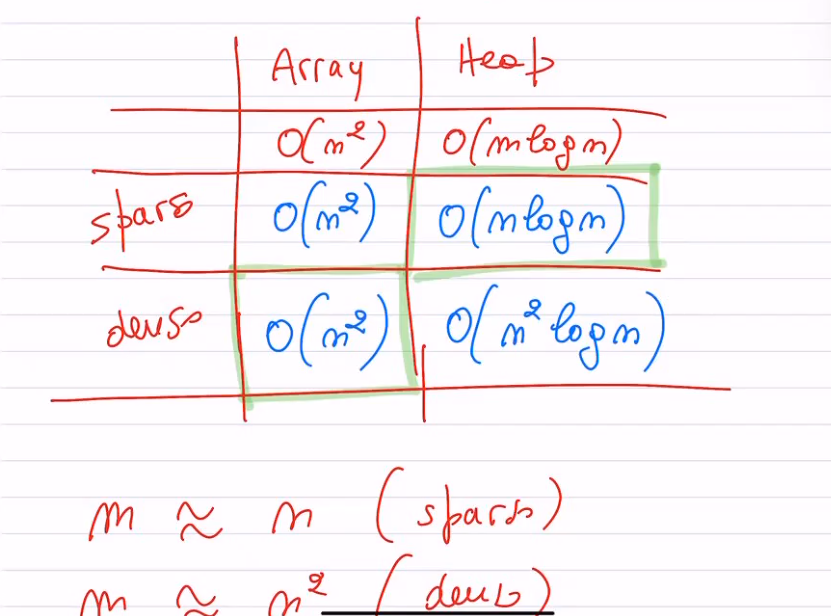 Array Heap
O(n²) O(m log n)
spars O(n²) O(n log n)
dense O(n²) O(n² log n)
m ≈ n (sparse)
m ≈ n² (dense)